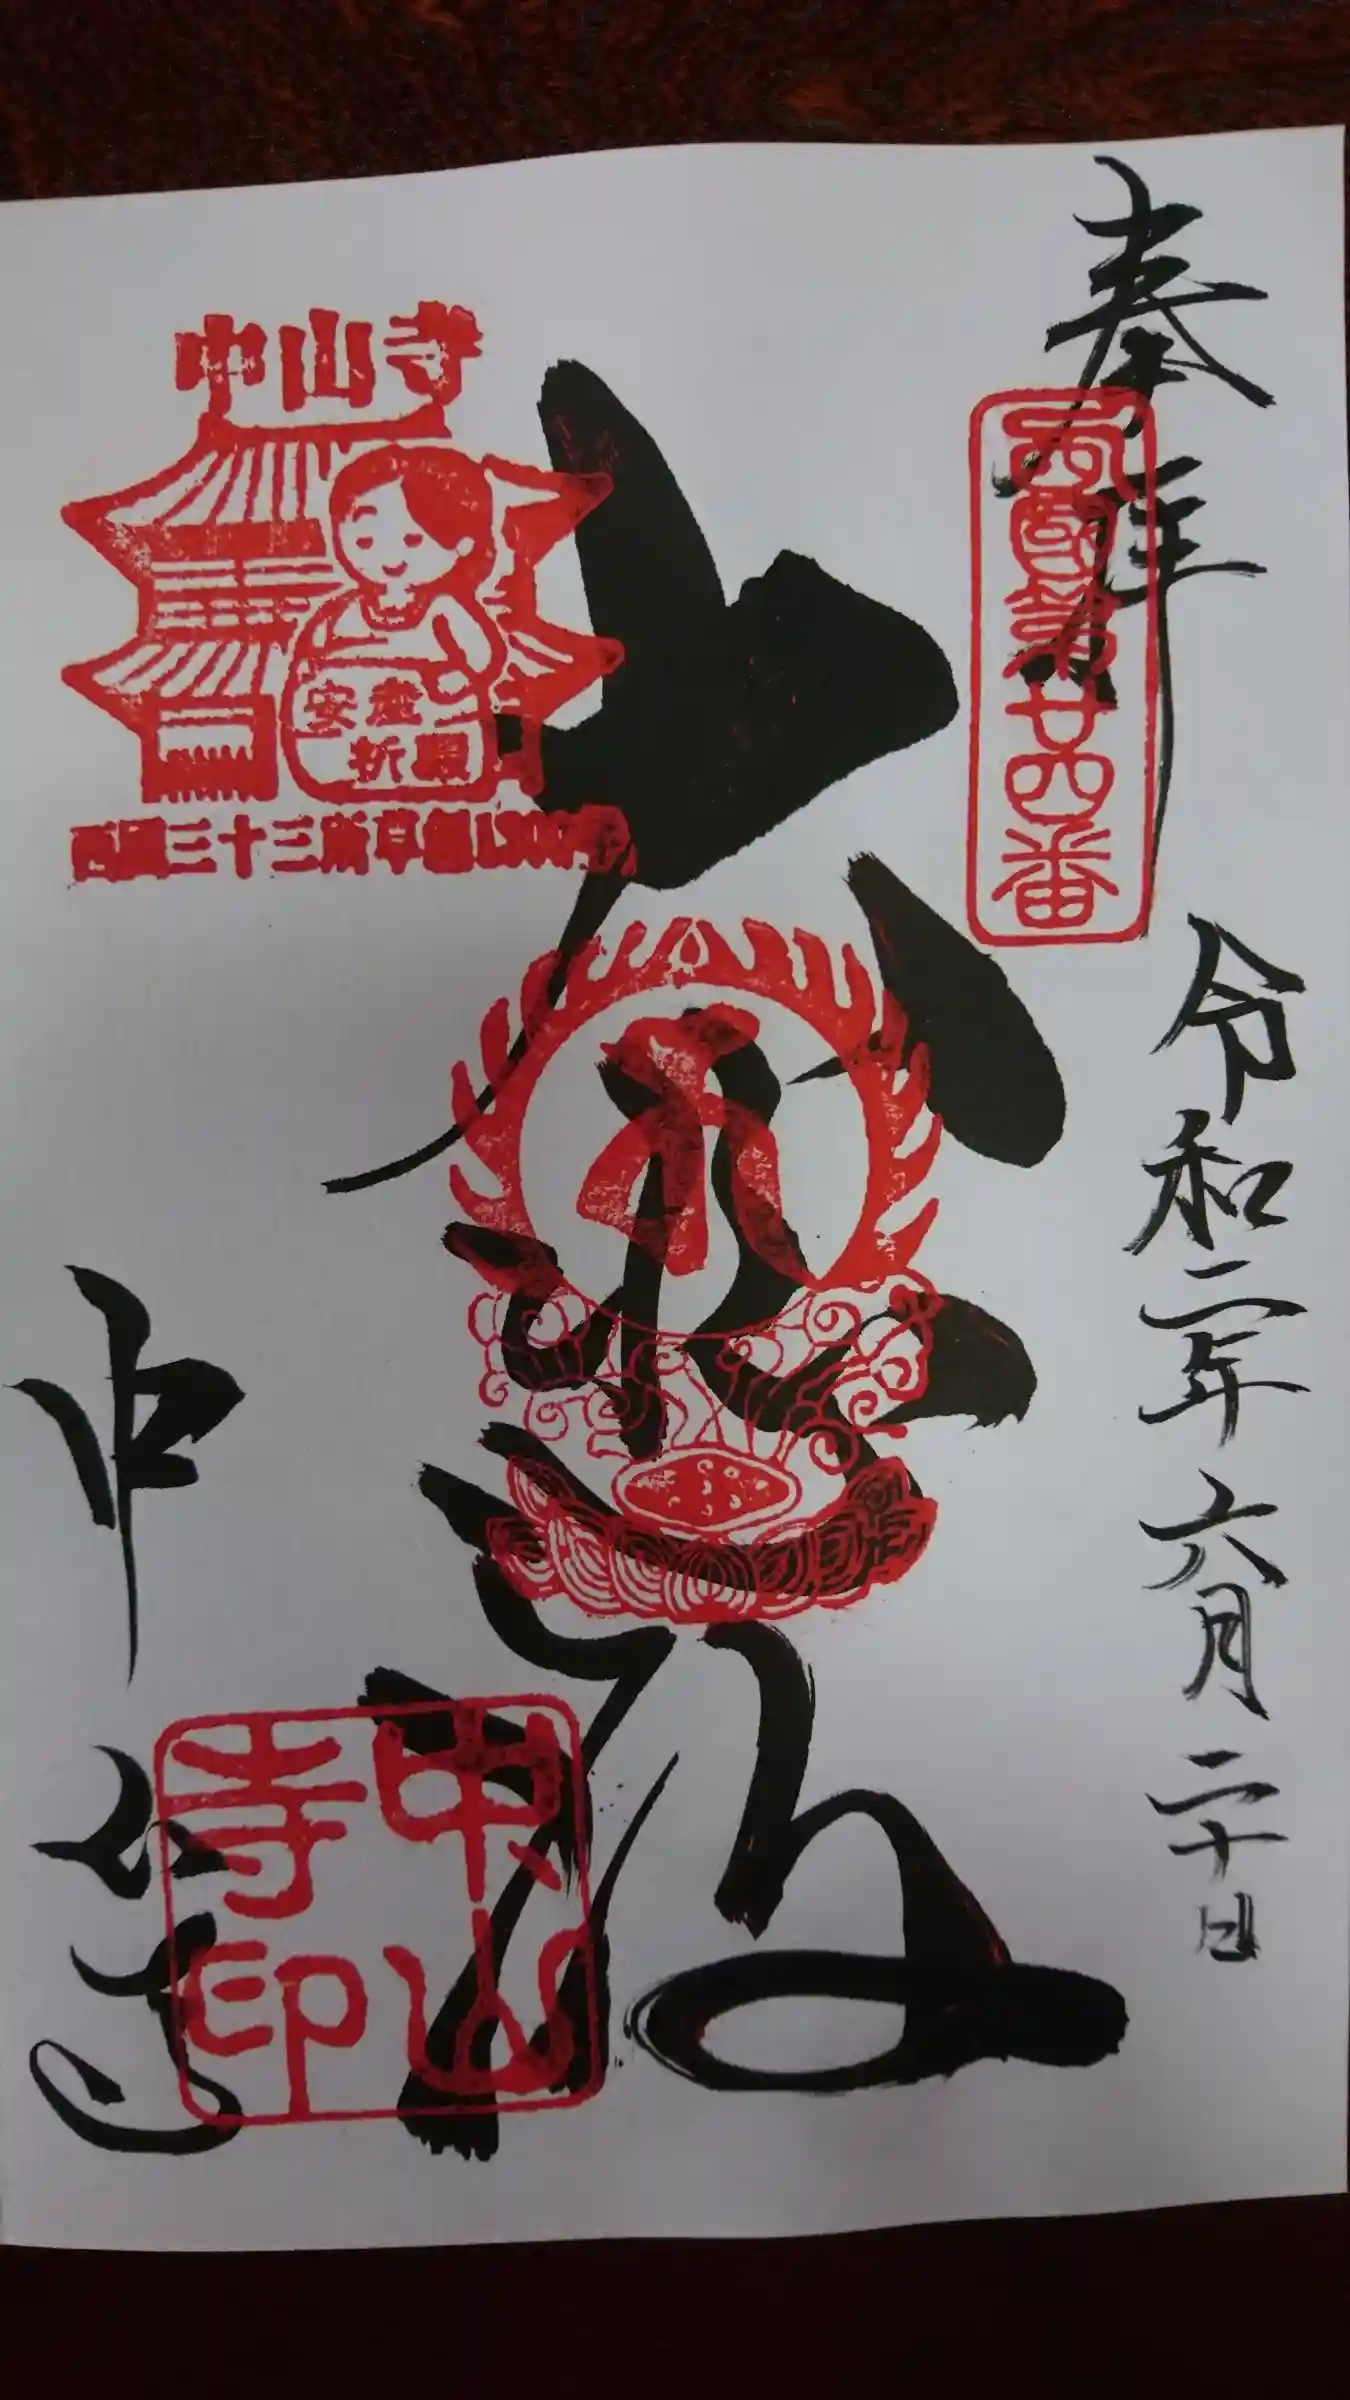 奉拝
西國第廿四番
令和二年六月二十日
大悲殿
中山寺
安産
祈願
西国三十三所草創1300年
中山寺印
中山寺